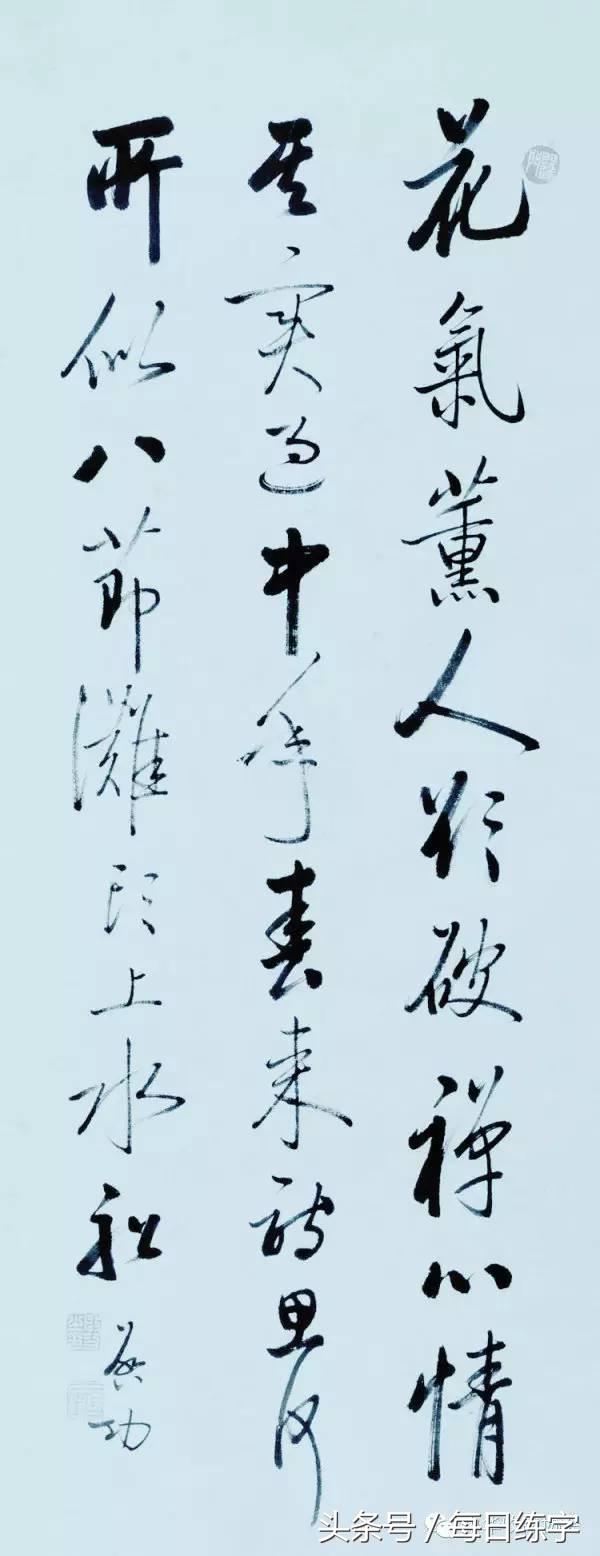 花氣薰人欲破禪心情
其實過中年春來詩思何
所似八節灘頭上水船
启功
头条号 / 每日练字